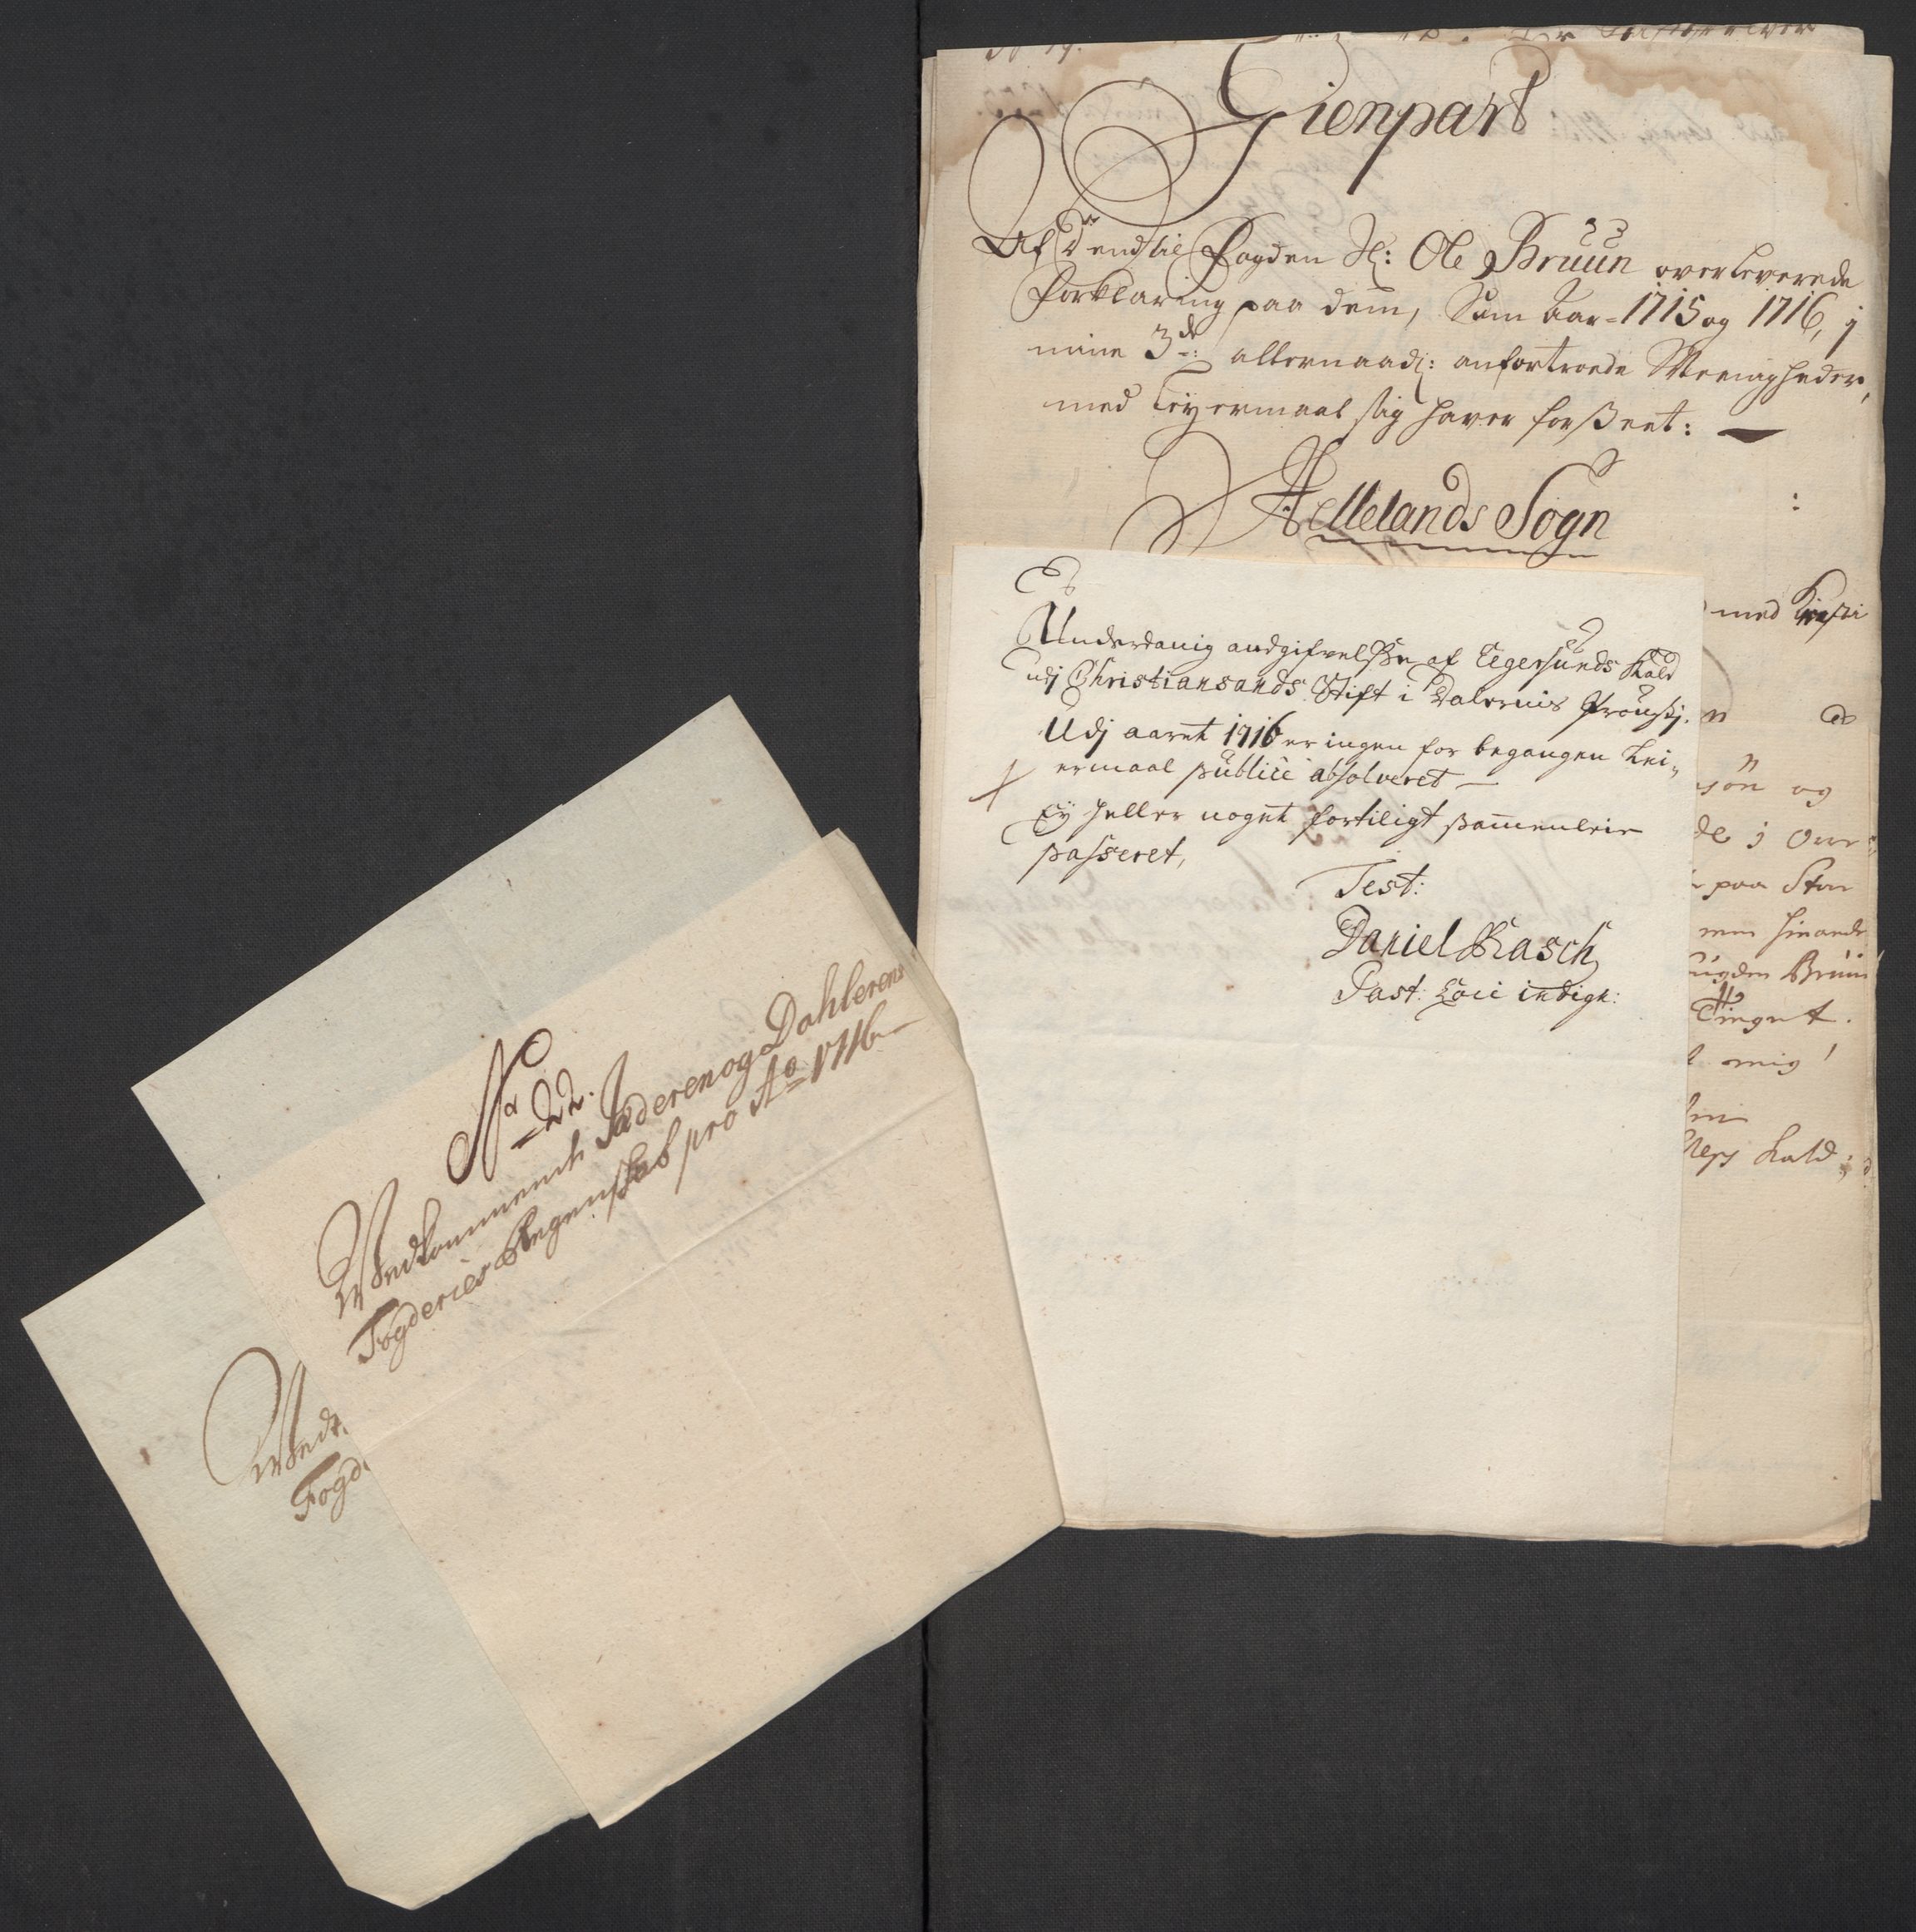 Gienpart
Af Dend til Fogden Hr: Ole Bruun overleverede
Forklaring paa dem, Som Aar=1715 og 1716, j
mine 3de: allernaadi: anfortroede Meenigheder,
med Leyermaal sig haver forseet:
Hellelands Sogn
med Kirsti
søn og
de j Ovre
paa Stor
men hinande
Bruun
Tinget.
mig!
Kald;
Underdanig andgifvelsse af Eegersunds Kald
udj Christiansands Stift i Dalernis Proustj.
Udj aaret 1716 er ingen for begangen Lei„
ermaal publicè absolveret —
Ey heller noget fortiligt sammenleie
passeret,
Test:
Daniel Rasch
Past: Loci indign:
No 22.
Vedkommende Jæderen og Dahlerens
Fogderies Regenskab pro Ao 1716
Vedk
Fogd